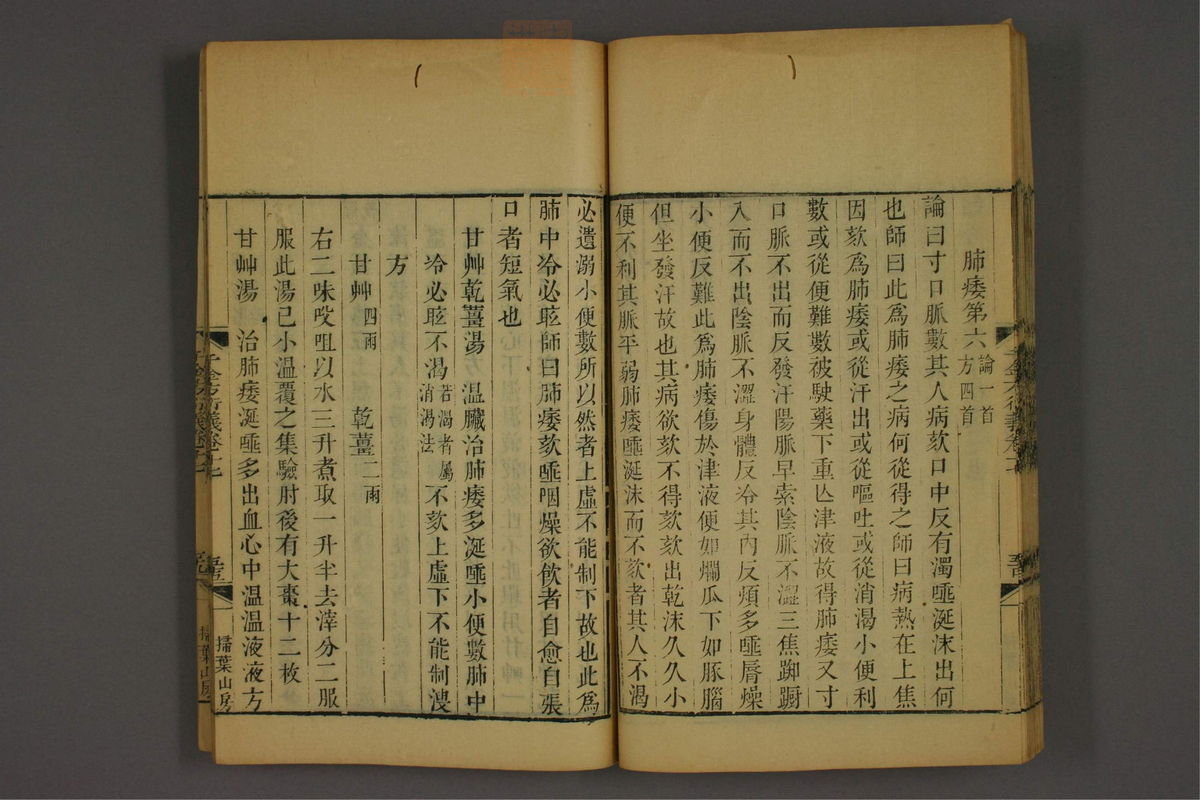 肺痿第六論一首方四首
論曰寸口脈數其人病欬口中反有濁唾涎沫出何
也師曰此爲肺痿之病何從得之師曰病熱在上焦
因欬爲肺痿或從汗出或從嘔吐或從消渴小便利
數或從便難數被駛藥下重亾津液故得肺痿又寸
口脈不出而反發汗陽脈早索陰脈不澀三焦踟躕
入而不出陰脈不澀身體反冷其內反煩多唾脣燥
小便反難此爲肺痿傷於津液便如爛瓜下如豚腦
但坐發汗故也其病欲欬不得欬欬出乾沫久久小
便不利其脈平弱肺痿唾涎沫而不欬者其人不渴
必遺溺小便數所以然者上虛不能制下故也此爲
肺中冷必眩師曰肺痿欬唾咽燥欲飲者自愈自張
口者短氣也
甘艸乾薑湯方溫臟治肺痿多涎唾小便數肺中
冷必眩不渴若渴者屬消渴法不欬上虛下不能制溲
方
甘艸四兩 乾薑二兩
右二味㕮咀以水三升煮取一升半去滓分二服
服此湯已小溫覆之集驗肘後有大棗十二枚
甘艸湯 治肺痿涎唾多出血心中溫溫液液方
千金方衍義卷十七
掃葉山房